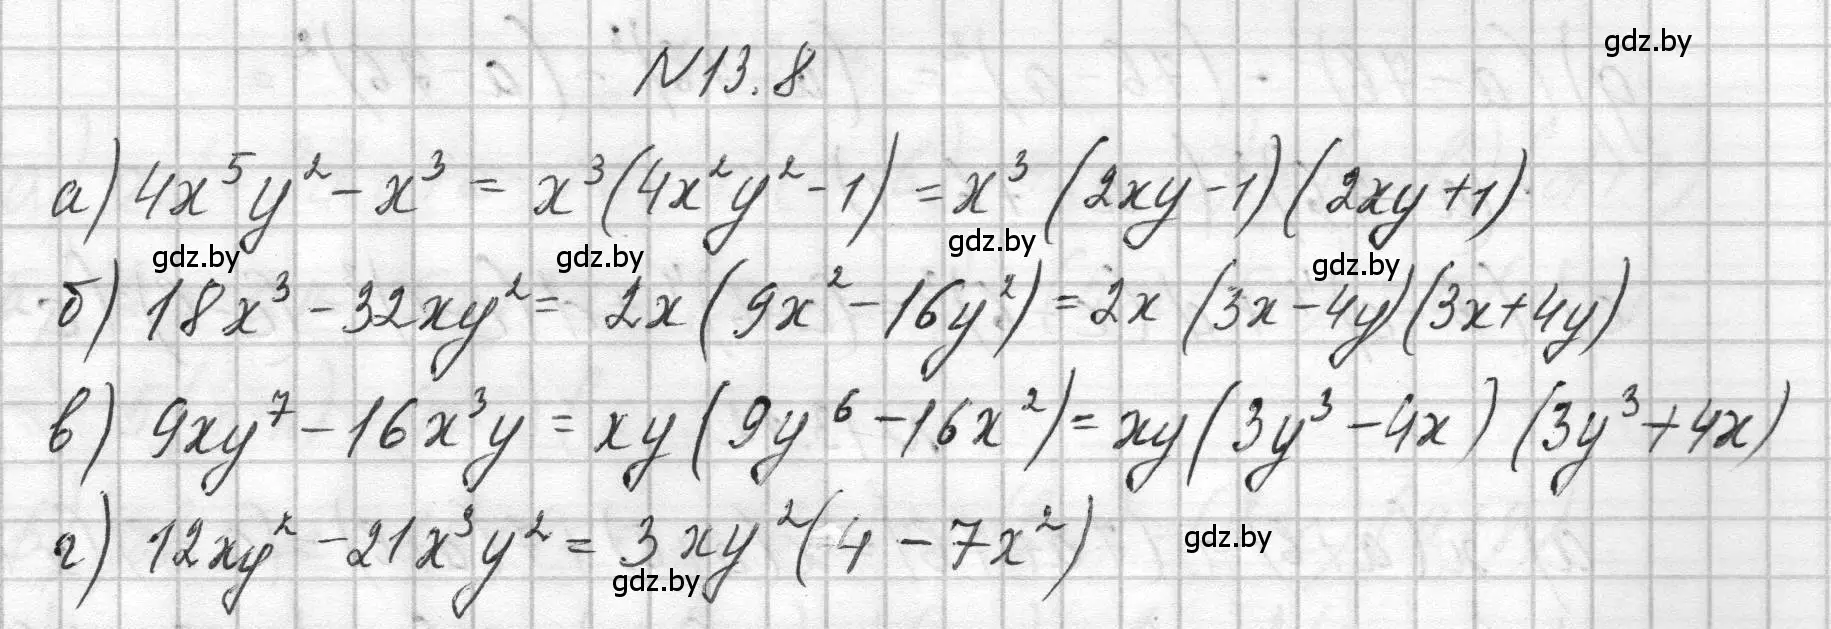 gdz.by
N13.8
а) 4x⁵y² - x³ = x³(4x²y² - 1) = x³ (2xy - 1)(2xy + 1)
gdz.by gdz.by gdz.by gdz.by
б) 18x³ - 32xy² = 2x(9x² - 16y²) = 2x (3x - 4y)(3x + 4y)
в) 9xy⁷ - 16x³y = xy(9y⁶ - 16x²) = xy(3y³ - 4x) (3y³ + 4x)
г) 12xy² - 21x³y² = 3xy²(4 - 7x²)
gdz.by gdz.by